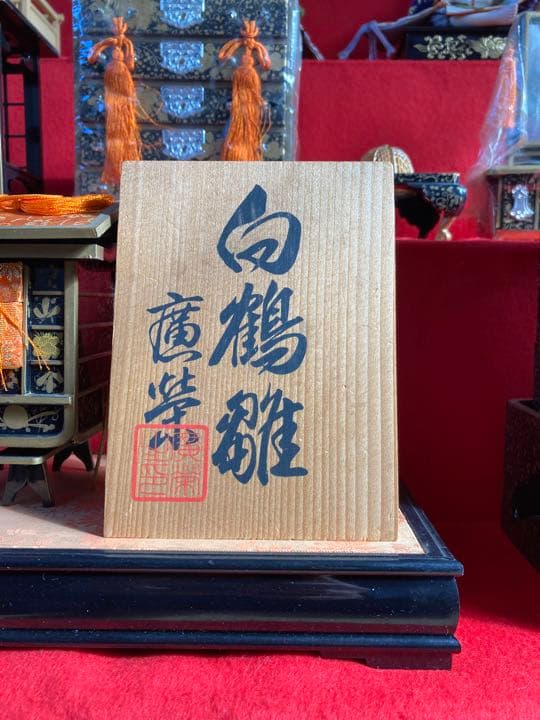 白鶴雛
廣榮